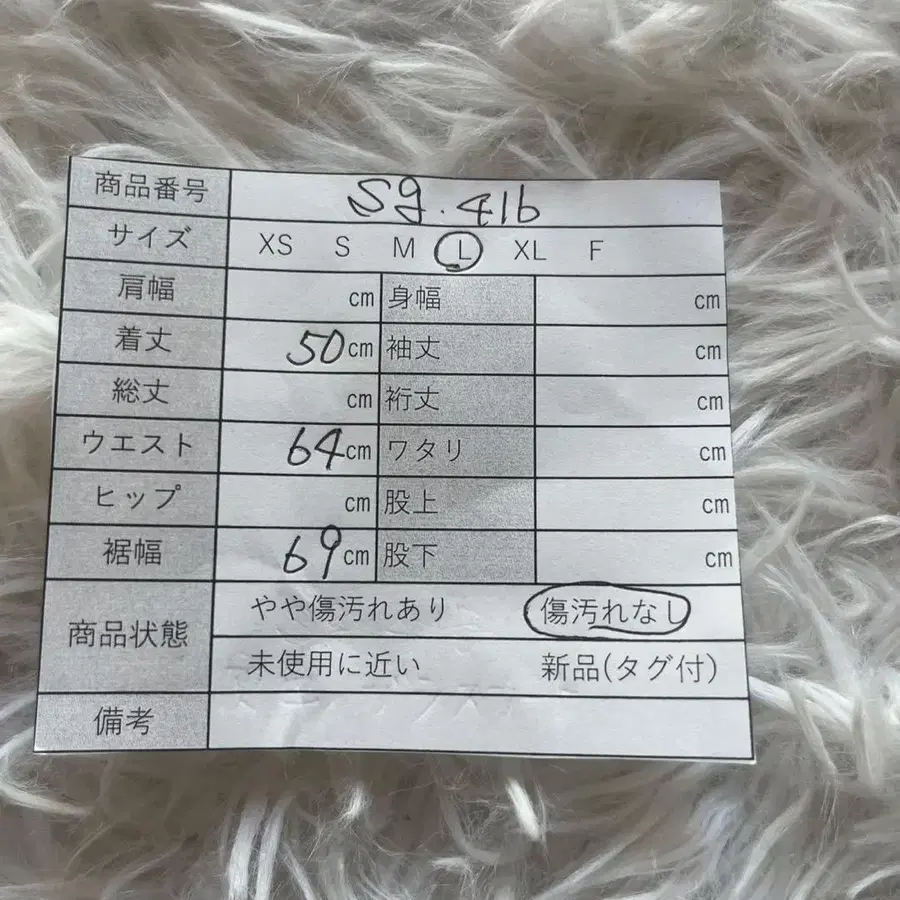 商品番号 sg.416
サイズ XS S M L XL F
肩幅 cm 身幅 cm
着丈 50cm 袖丈 cm
総丈 cm 裄丈 cm
ウエスト 64cm ワタリ cm
ヒップ cm 股上 cm
裾幅 69cm 股下 cm
商品状態 やや傷汚れあり 傷汚れなし
未使用に近い 新品(タグ付)
備考